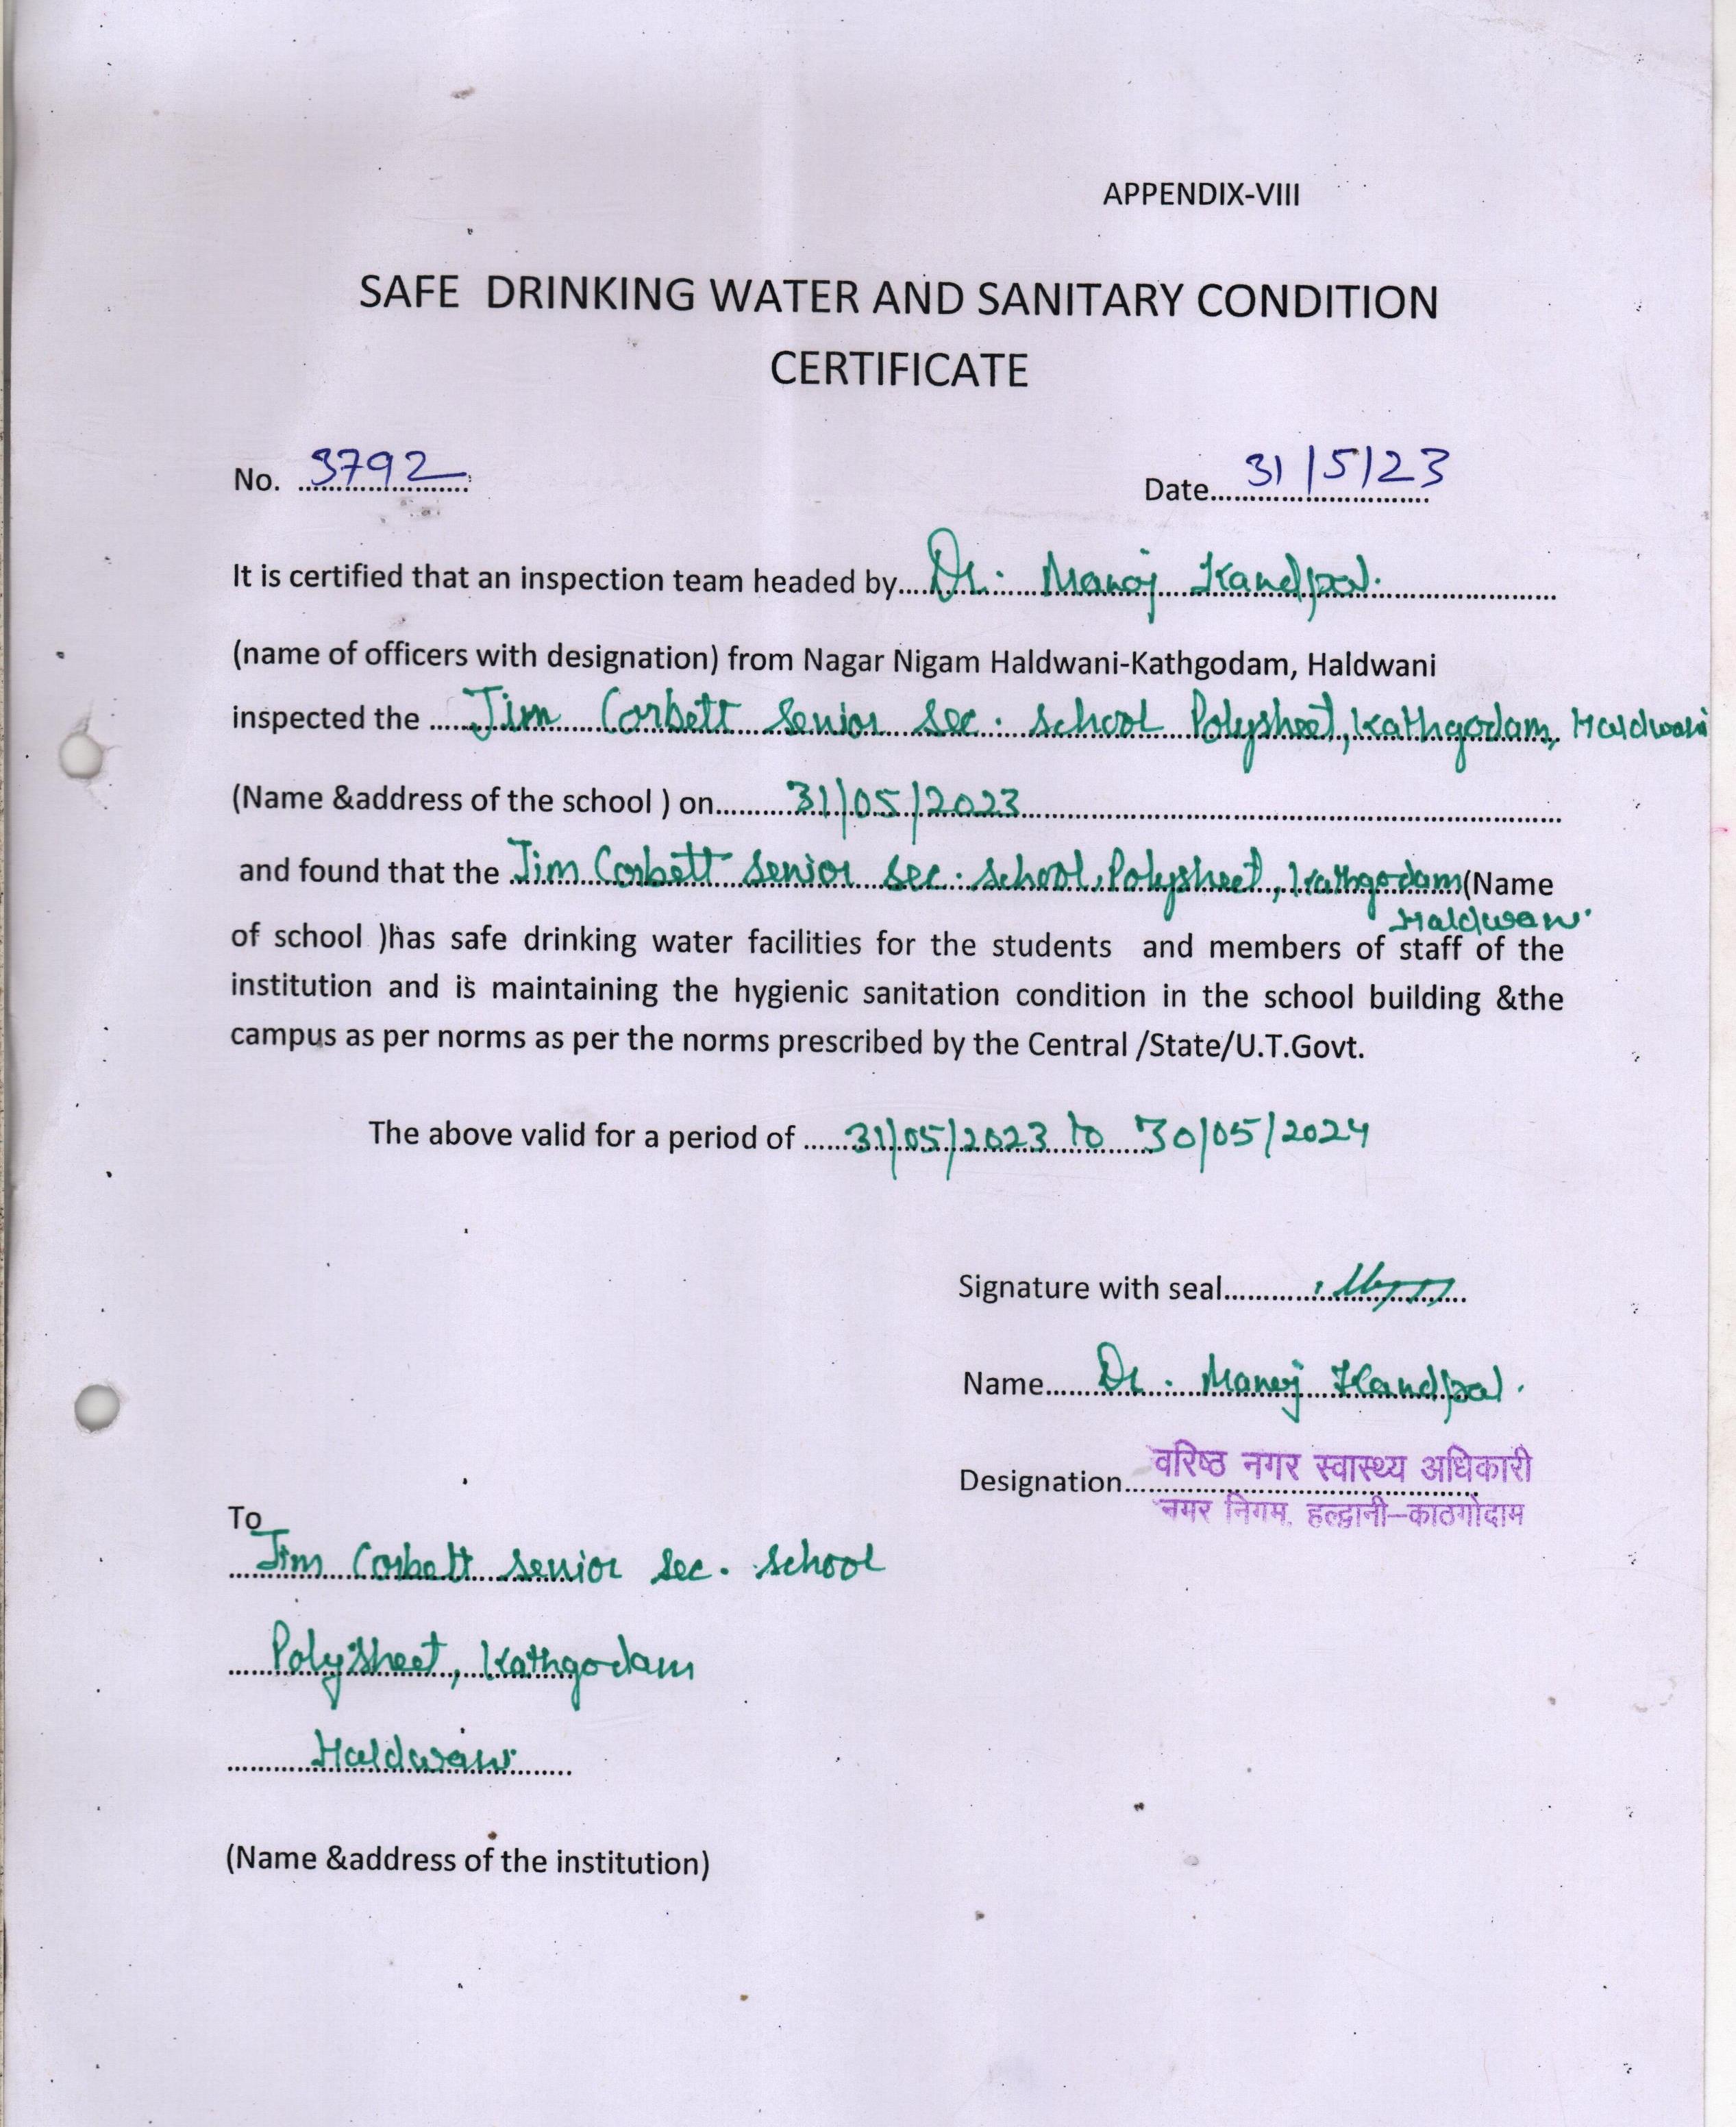 APPENDIX-VIII
SAFE DRINKING WATER AND SANITARY CONDITION
CERTIFICATE
No. 3792
Date 31/5/23
It is certified that an inspection team headed by Dr. Manoj Kandpal.
(name of officers with designation) from Nagar Nigam Haldwani-Kathgodam, Haldwani
inspected the Jim Corbett senior sec. school Polysheet, Kathgodam, Haldwani
(Name &address of the school ) on 31/05/2023
and found that the Jim Corbett senior sec. school, Polysheet, Kathgodam (Name
Haldwani
of school )has safe drinking water facilities for the students and members of staff of the
institution and is maintaining the hygienic sanitation condition in the school building &the
campus as per norms as per the norms prescribed by the Central /State/U.T.Govt.
The above valid for a period of 31/05/2023 to 30/05/2024
Signature with seal
Name Dr. Manoj Kandpal.
Designation वरिष्ठ नगर स्वास्थ्य अधिकारी
नगर निगम, हल्द्वानी–काठगोदाम
To
Jim Corbett senior sec. school
Polysheet, Kathgodam
Haldwani
(Name &address of the institution)